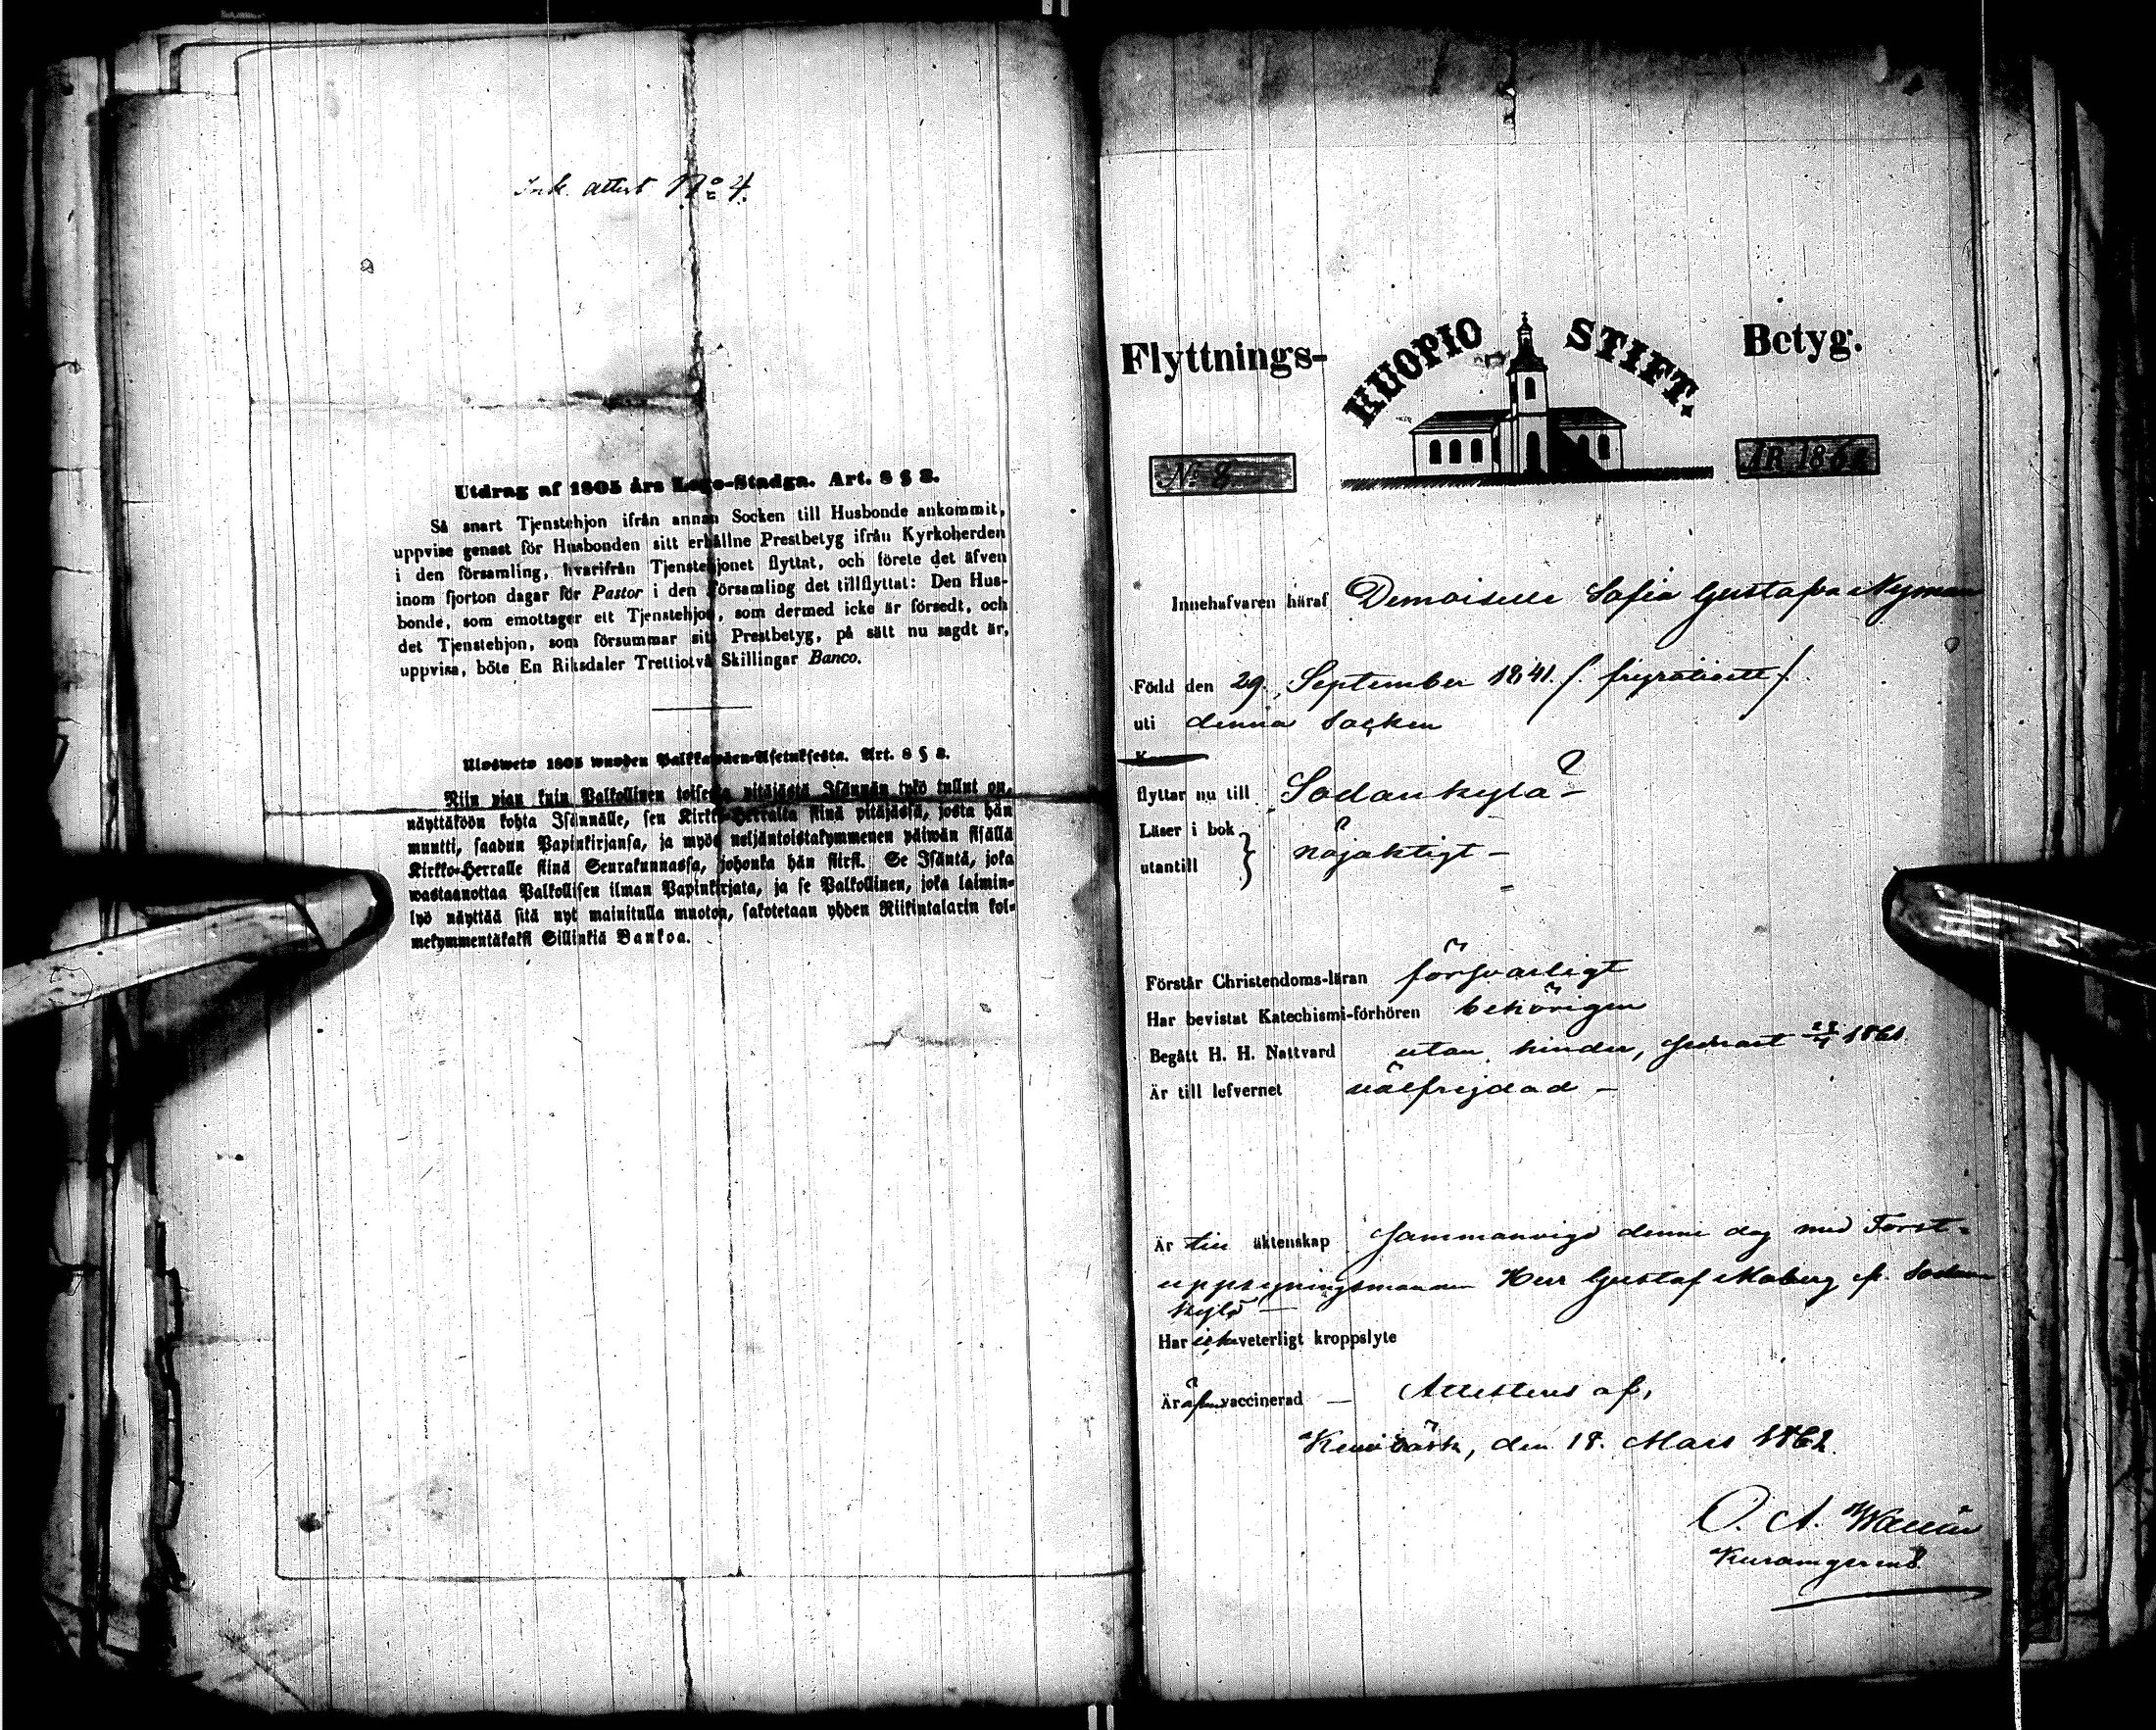 Ink. attest No 4.
Utdrag af 1805 års Lego-Stadga. Art. 8 § 2.
Så snart Tjenstehjon ifrån annan Socken till Husbonde ankommit,
uppvise genast för Husbonden sitt erhållne Prestbetyg ifrån Kyrkoherden
i den församling, hvarifrån Tjenstehjonet flyttat, och förete det äfven
inom fjorton dagar för Pastor i den församling det tillflyttat: Den Hus-
bonde, som emottager ett Tjenstehjon, som dermed icke är försedt, och
det Tjenstehjon, som försummar sitt Prestbetyg, på sätt nu sagdt är,
uppvisa, böte En Riksdaler Trettiotvå Skillingar Banco.
Ulosweto 1805 wuoden Palkkawäen-Asetuksesta. Art. 8 § 2.
Niin pian kuin Palkollinen toisesta pitäjästä Isännän tykö tullut on,
näyttäköön kohta Isännälle, sen Kirkko-Herralta siinä pitäjässä, josta hän
muutti, saadun Papinkirjansa, ja myös neljäntoistakymmenen päiwän sisällä
Kirkko-Herralle siinä Seurakunnassa, johonka hän siirsi. Se Isäntä, joka
wastaanottaa Palkollisen ilman Papinkirjata, ja se Palkollinen, joka laimin-
lyö näyttää sitä nyt mainitulla muoton, sakotetaan yhden Riikintalarin kol-
mekymmentäkaksi Sillinkiä Bankoa.
Flyttnings- KUOPIO STIFT. Betyg.
No 8 ÅR 1862
Innehafvaren häraf Demoiselle Sofia Gustafva Nyman
Född den 29. September 1841. /. fyratioett /.
uti denna Socken
flyttar nu till Sodankylä –
Läser i bok
utantill } nöjaktigt –
Förstår Christendoms-läran försvarligt
Har bevistat Katechismi-förhören behörigen
Begått H. H. Nattvard utan hinder, senast 1861.
Är till lefvernet välfrejdad –
Är till äktenskap Sammanvigd denne dag med Forst-
uppsyningsmannen Herr Gustaf Moberg fr. Sodan
kylä –
Har icke veterligt kroppslyte
Är äfven vaccinerad – Attesteras af,
Kemiträsk, den 18. Mars 1862.
O. A.